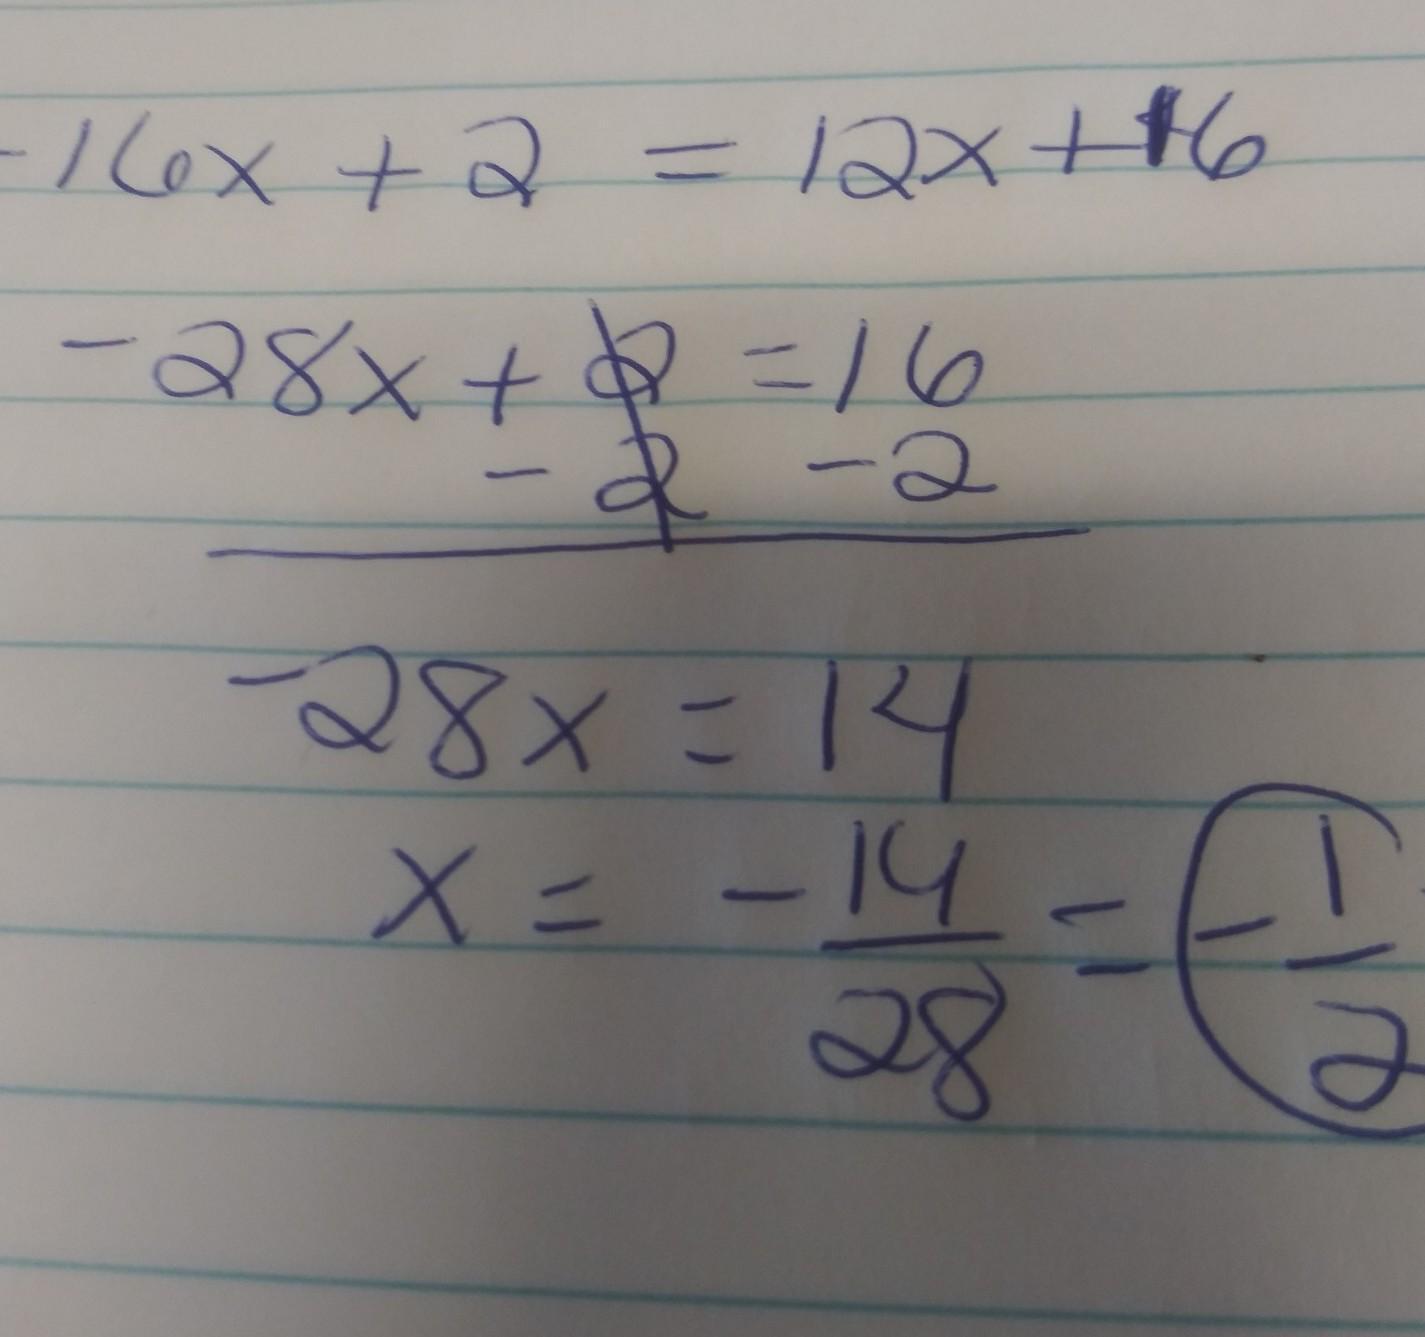 -16x + 2 = 12x + 16
-28x + 2 = 16
- 2 - 2
-28x = 14
x = - 14/28 = - 1/2